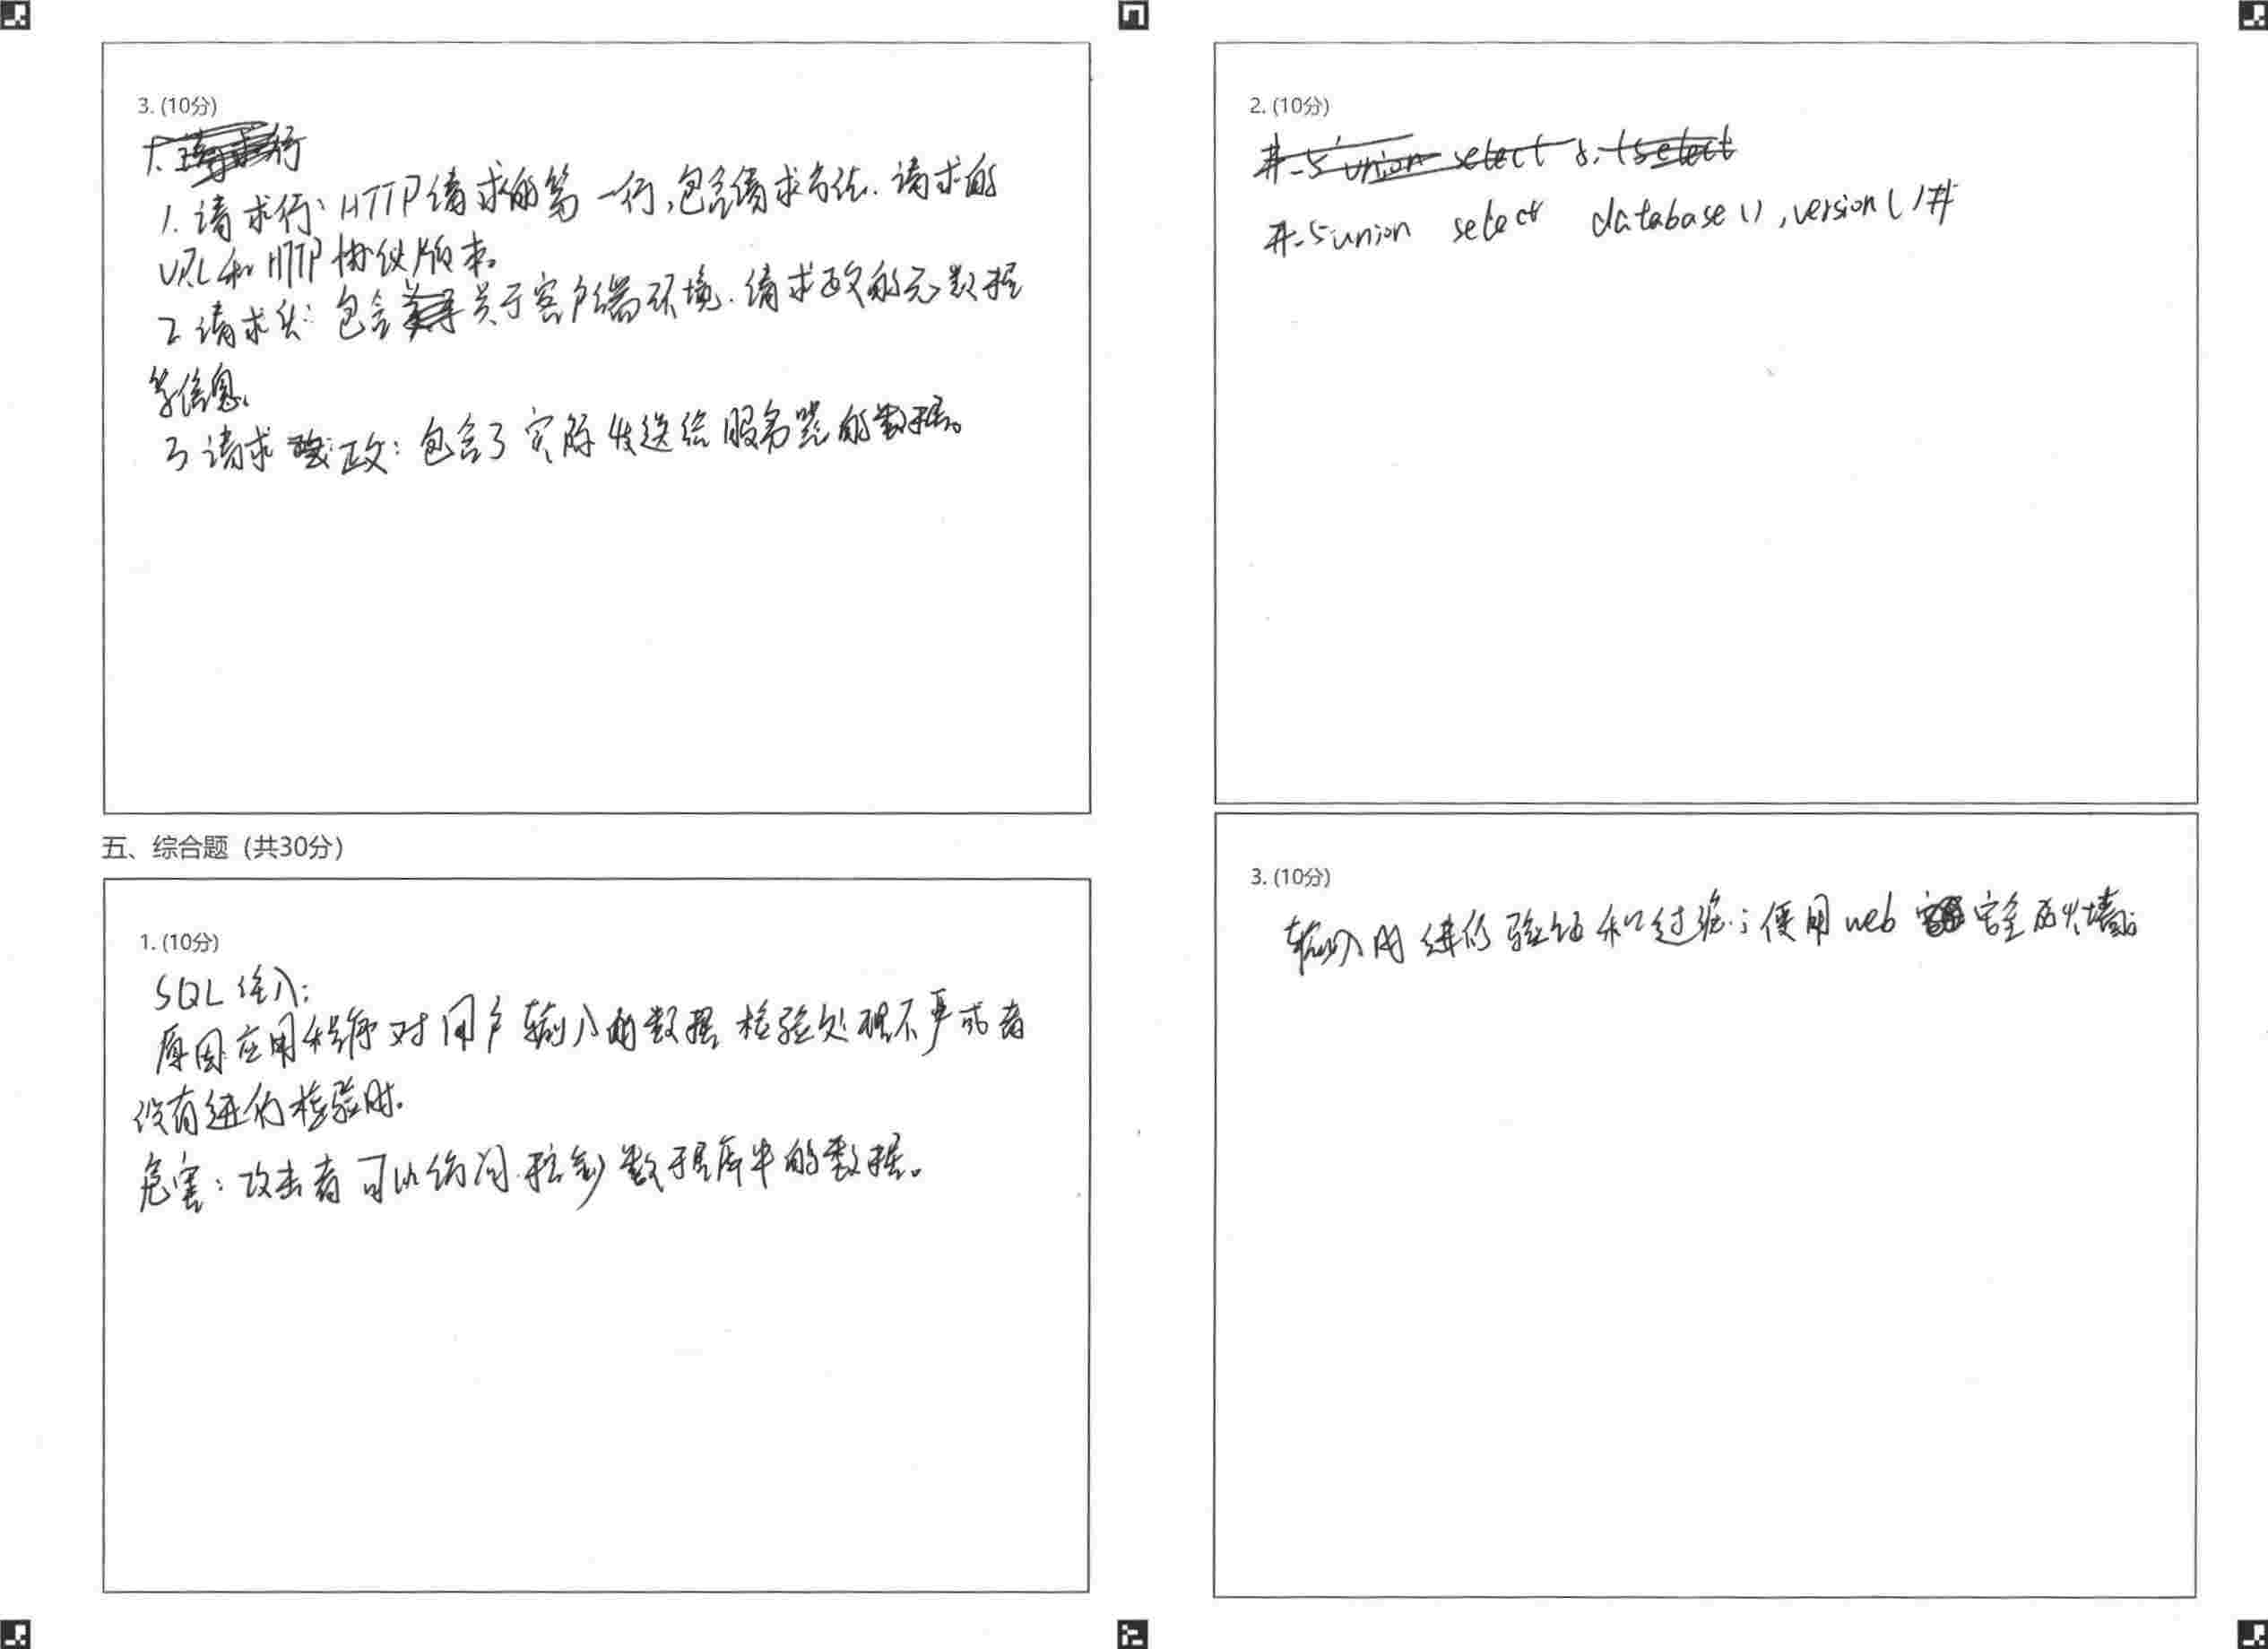 3. (10分)
1. 请求行: HTTP请求的第一行,包含请求方法.请求的
URL和HTTP协议版本。
2 请求头: 包含关于客户端环境.请求正文的元数据
等信息.
3 请求正文: 包含了实际发送给服务器的数据。
五、综合题（共30分）
1. (10分)
SQL注入:
原因:应用程序对用户输入的数据检验处理不严或者
没有进行检验时.
危害: 攻击者可以访问.控制数据库中的数据。
2. (10分)
union select database(),version()#
3. (10分)
输入 进行验证和过滤; 使用web 安全防火墙;